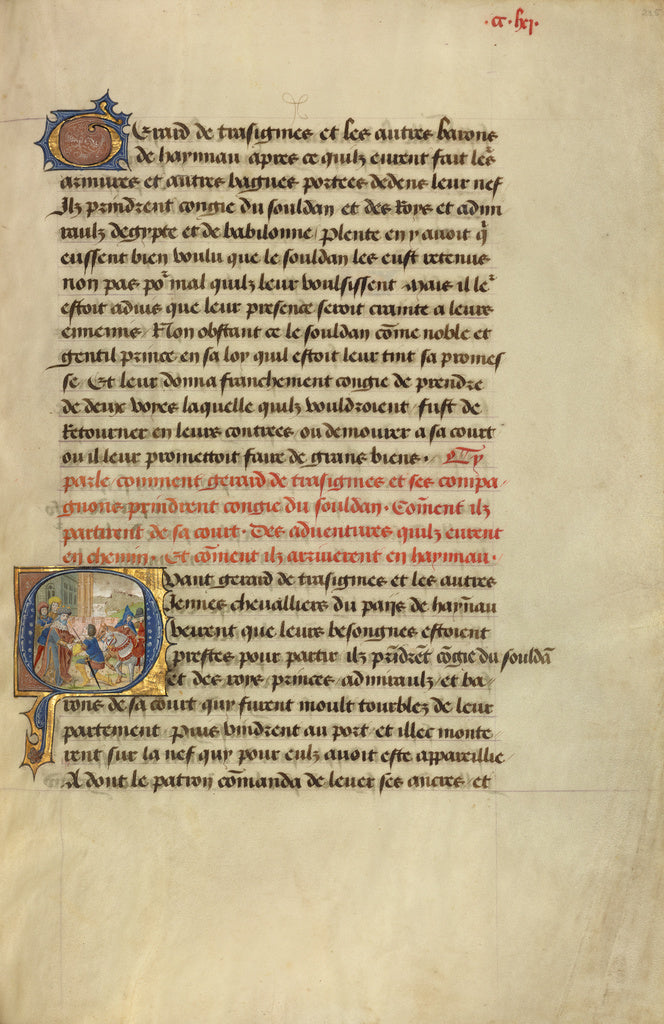 Gerard de trasignies et les autres barons
de haynnau apres ce quilz eurent fait leurs
armures et autres bagues portees dedens leur nef
Ilz prindrent congie du souldan et des Roys et admi
raulz degypte et de babilonne / Plente en y auoit qi
eussent bien voulu que le souldan les eust retenus
non pas por mal quilz leur voulsissent Mais il ler
estoit aduis que leur presence seroit crainte a leurs
ennemis / Non obstant ce le souldan cōme noble et
gentil prince en sa loy quil estoit leur tint sa promes
se / Et leur donna franchement congie de prendre
de deux voyes laquelle quilz vouldroient / fust de
Retourner en leurs contrees ou demourer a sa court
ou il leur promettoit faire de grans biens · Cy
parle comment gerard de trasignies et ses compa
gnons prindrent congie du souldan · Com̄ent ilz
partirent de sa court · Des aduentures quilz eurent
en chemin · Et cōment ilz arriuerent en haynnau ·
Quant gerard de trasignies et les autres
Jennes cheualliers du pays de hayn̄au
veirent que leurs besongnes estoient
prestes pour partir ilz prīdrēt cōgie du souldā
et des roys princes admiraulz et ba-
rons de sa court quy furent moult tourblez de leur
partement / Puis vindrent au port et illec monte
rent sur la nef quy pour eulz auoit este appareillie /
A dont le patron cōmanda de leuer ses ancres / et